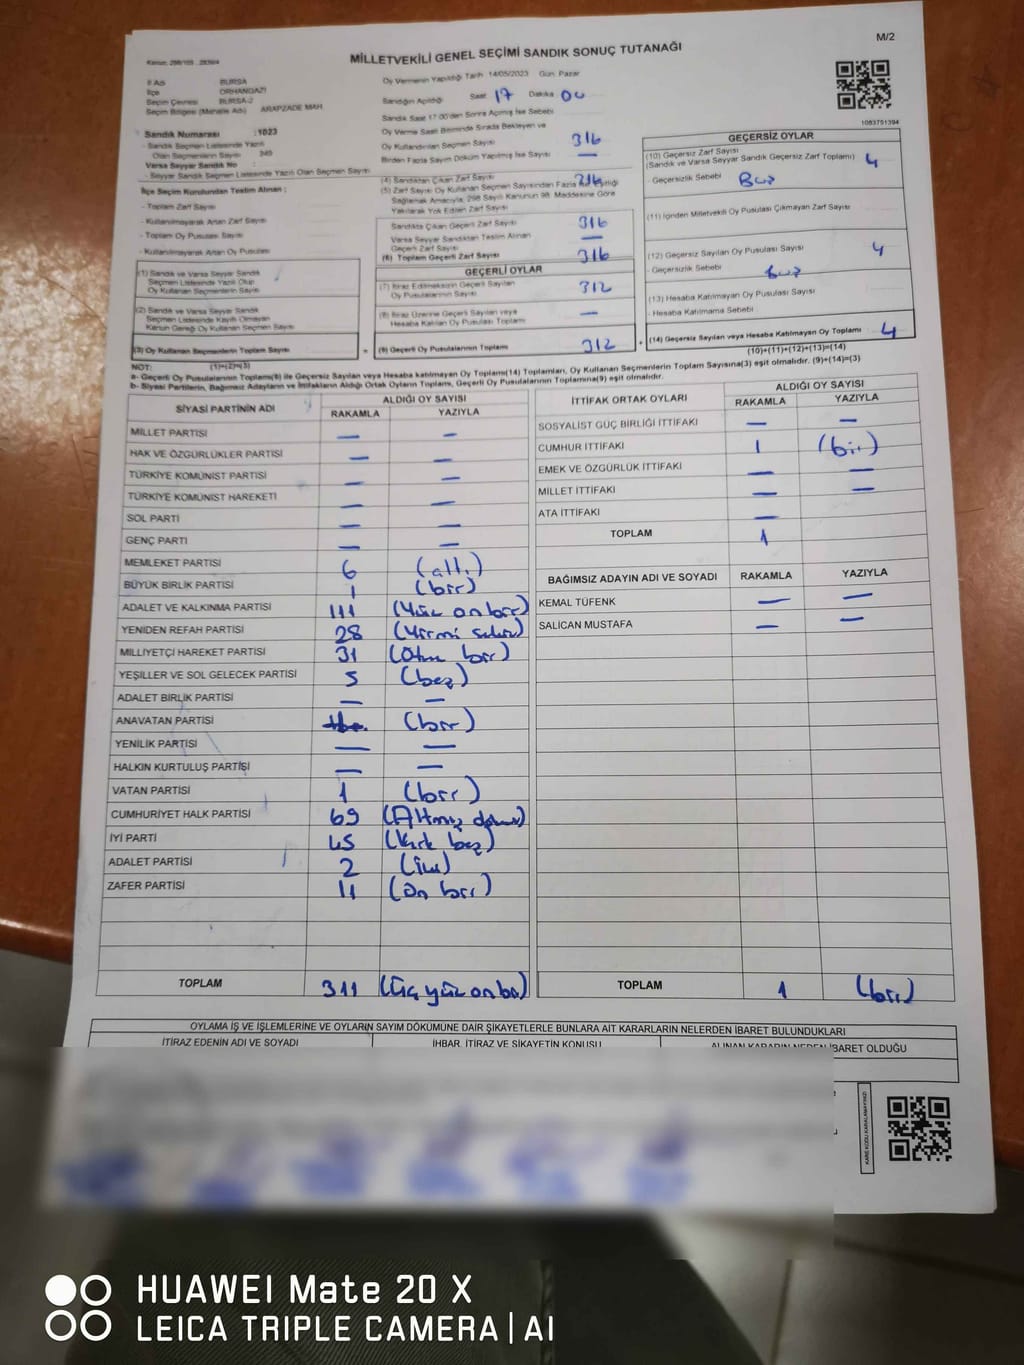 M/2
MİLLETVEKİLİ GENEL SEÇİMİ SANDIK SONUÇ TUTANAĞI
İl Adı BURSA
İlçe ORHANGAZİ
Seçim Çevresi BURSA-2
Seçim Bölgesi (Mahalle Adı) ARAPZADE MAH
Sandık Numarası :1023
- Sandık Seçmen Listesinde Yazılı
Olan Seçmenlerin Sayısı 345
Varsa Seyyar Sandık No :
- Seyyar Sandık Seçmen Listesinde Yazılı Olan Seçmen Sayısı
İlçe Seçim Kurulundan Teslim Alınan :
- Toplam Zarf Sayısı
- Kullanılmayarak Artan Zarf Sayısı
- Toplam Oy Pusulası Sayısı
- Kullanılmayarak Artan Oy Pusulası
(1) Sandık ve Varsa Seyyar Sandık
Seçmen Listesinde Yazılı Olup
Oy Kullanan Seçmenlerin Sayısı
(2) Sandık ve Varsa Seyyar Sandık
Seçmen Listesinde Kayıtlı Olmayan
Kanun Gereği Oy Kullanan Seçmen Sayısı
(3) Oy Kullanan Seçmenlerin Toplam Sayısı
Oy Vermenin Yapıldığı Tarih 14/05/2023 Gün Pazar
Sandığın Açıldığı Saat 17 Dakika 00
Sandık Saat 17.00'den Sonra Açılmış İse Sebebi
Oy Verme Saati Bitiminde Sırada Bekleyen ve
Oy Kullandırılan Seçmen Sayısı 316
Birden Fazla Sayım Döküm Yapılmış İse Sayısı —
(4) Sandıktan Çıkan Zarf Sayısı 316
(5) Zarf Sayısı Oy Kullanan Seçmen Sayısından Fazla İse Eşitliği
Sağlamak Amacıyla, 298 Sayılı Kanunun 98. Maddesine Göre
Yakılarak Yok Edilen Zarf Sayısı
Sandıkta Çıkan Geçerli Zarf Sayısı 316
Varsa Seyyar Sandıktan Teslim Alınan
Geçerli Zarf Sayısı —
(6) Toplam Geçerli Zarf Sayısı 316
GEÇERLİ OYLAR
(7) İtiraz Edilmeksizin Geçerli Sayılan
Oy Pusulalarının Sayısı 312
(8) İtiraz Üzerine Geçerli Sayılan veya
Hesaba Katılan Oy Pusulası Toplamı —
= (9) Geçerli Oy Pusulalarının Toplamı 312
1083751394
GEÇERSİZ OYLAR
(10) Geçersiz Zarf Sayısı
(Sandık ve Varsa Seyyar Sandık Geçersiz Zarf Toplamı) 4
- Geçersizlik Sebebi
(11) İçinden Milletvekili Oy Pusulası Çıkmayan Zarf Sayısı
(12) Geçersiz Sayılan Oy Pusulası Sayısı 4
- Geçersizlik Sebebi
(13) Hesaba Katılmayan Oy Pusulası Sayısı
- Hesaba Katılmama Sebebi
+ (14) Geçersiz Sayılan veya Hesaba Katılmayan Oy Toplamı 4
(10)+(11)+(12)+(13)=(14)
NOT: (1)+(2)=(3)
a- Geçerli Oy Pusulalarının Toplamı(9) ile Geçersiz Sayılan veya Hesaba Katılmayan Oy Toplamı(14) Toplamları, Oy Kullanan Seçmenlerin Toplam Sayısına(3) eşit olmalıdır. (9)+(14)=(3)
b- Siyasi Partilerin, Bağımsız Adayların ve İttifakların Aldığı Ortak Oyların Toplamı, Geçerli Oy Pusulalarının Toplamına(9) eşit olmalıdır.
SİYASİ PARTİNİN ADI ALDIĞI OY SAYISI
RAKAMLA YAZIYLA
MİLLET PARTİSİ — —
HAK VE ÖZGÜRLÜKLER PARTİSİ — —
TÜRKİYE KOMÜNİST PARTİSİ — —
TÜRKİYE KOMÜNİST HAREKETİ — —
SOL PARTİ — —
GENÇ PARTİ — —
MEMLEKET PARTİSİ 6 (altı)
BÜYÜK BİRLİK PARTİSİ 1 (bir)
ADALET VE KALKINMA PARTİSİ 111 (Yüz on bir)
YENİDEN REFAH PARTİSİ 28 (Yirmi sekiz)
MİLLİYETÇİ HAREKET PARTİSİ 31 (Otuz bir)
YEŞİLLER VE SOL GELECEK PARTİSİ 5 (beş)
ADALET BİRLİK PARTİSİ — —
ANAVATAN PARTİSİ (bir)
YENİLİK PARTİSİ — —
HALKIN KURTULUŞ PARTİSİ — —
VATAN PARTİSİ 1 (bir)
CUMHURİYET HALK PARTİSİ 69 (Altmış dokuz)
İYİ PARTİ 45 (Kırk beş)
ADALET PARTİSİ 2 (iki)
ZAFER PARTİSİ 11 (On bir)
TOPLAM 311 (Üç yüz on bir)
İTTİFAK ORTAK OYLARI ALDIĞI OY SAYISI
RAKAMLA YAZIYLA
SOSYALİST GÜÇ BİRLİĞİ İTTİFAKI — —
CUMHUR İTTİFAKI 1 (bir)
EMEK VE ÖZGÜRLÜK İTTİFAKI — —
MİLLET İTTİFAKI — —
ATA İTTİFAKI —
TOPLAM 1
BAĞIMSIZ ADAYIN ADI VE SOYADI RAKAMLA YAZIYLA
KEMAL TÜFENK — —
SALİCAN MUSTAFA — —
TOPLAM 1 (bir)
OYLAMA İŞ VE İŞLEMLERİNE VE OYLARIN SAYIM DÖKÜMÜNE DAİR ŞİKAYETLERLE BUNLARA AİT KARARLARIN NELERDEN İBARET BULUNDUKLARI
İTİRAZ EDENİN ADI VE SOYADI İHBAR, İTİRAZ VE ŞİKAYETİN KONUSU ALINAN KARARIN NEDEN İBARET OLDUĞU
KARE KODU KARALAMAYINIZ
HUAWEI Mate 20 X
LEICA TRIPLE CAMERA | AI